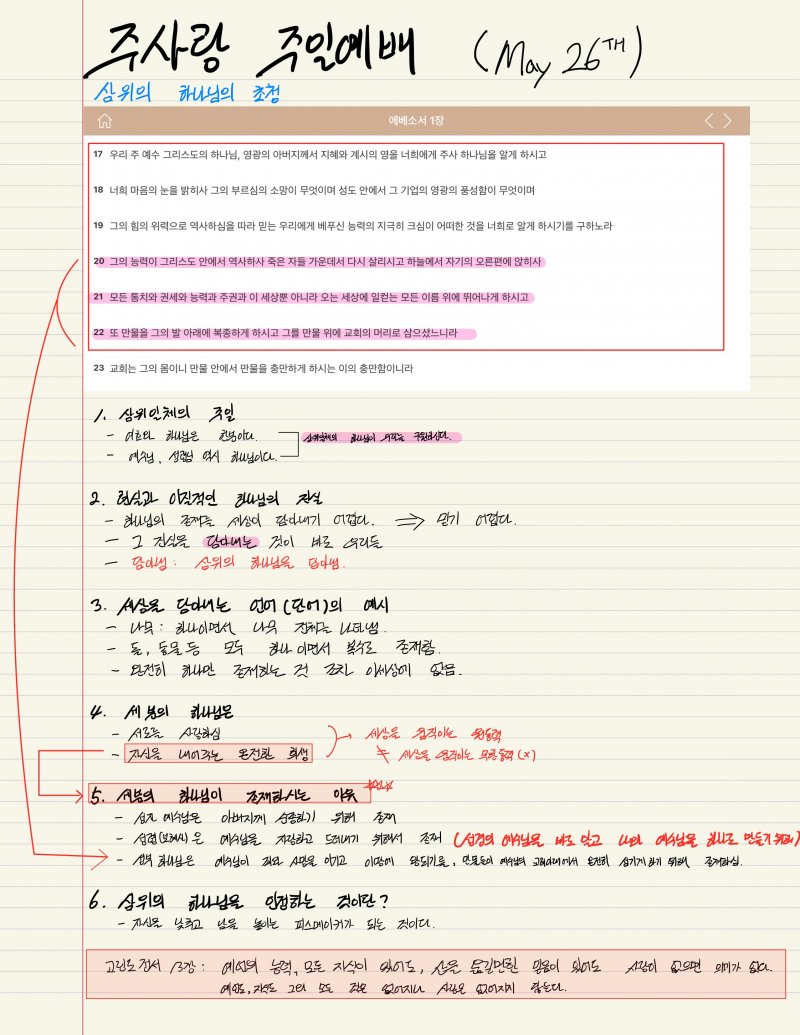 주사랑 주일예배 (May 26TH)
삼위의 하나님의 초청
에베소서 1장
17 우리 주 예수 그리스도의 하나님, 영광의 아버지께서 지혜와 계시의 영을 너희에게 주사 하나님을 알게 하시고
18 너희 마음의 눈을 밝히사 그의 부르심의 소망이 무엇이며 성도 안에서 그 기업의 영광의 풍성함이 무엇이며
19 그의 힘의 위력으로 역사하심을 따라 믿는 우리에게 베푸신 능력의 지극히 크심이 어떠한 것을 너희로 알게 하시기를 구하노라
20 그의 능력이 그리스도 안에서 역사하사 죽은 자들 가운데서 다시 살리시고 하늘에서 자기의 오른편에 앉히사
21 모든 통치와 권세와 능력과 주권과 이 세상뿐 아니라 오는 세상에 일컫는 모든 이름 위에 뛰어나게 하시고
22 또 만물을 그의 발 아래에 복종하게 하시고 그를 만물 위에 교회의 머리로 삼으셨느니라
23 교회는 그의 몸이니 만물 안에서 만물을 충만하게 하시는 이의 충만함이니라
1. 삼위일체의 주일
- 여호와 하나님은 한분이다.
삼위일체의 하나님이 우리를 구원하신다.
- 예수님, 성령님 역시 하나님이다.
2. 현실과 이질적인 하나님의 진실
- 하나님의 존재는 세상이 담아내기 어렵다. ⇒ 믿기 어렵다.
- 그 진실을 담아내는 것이 바로 우리들
- 담아냄 : 삼위의 하나님을 담아냄.
3. 세상을 담아내는 언어(단어)의 예시
- 나무 : 하나이면서 나무 전체를 나타냄.
- 돌, 동물 등 모두 하나이면서 복수로 존재함.
- 완전히 하나만 존재하는 것 조차 이세상에 없음.
4. 세 분의 하나님은
- 서로를 사랑하심
→ 세상을 움직이는 원동력
- 자신을 내어주는 온전한 희생
≠ 세상을 움직이는 무한동력 (x)
5. 세분의 하나님이 존재하시는 이유
- 성자 예수님은 아버지께 순종하기 위해 존재
- 성령(보혜사)은 예수님을 자랑하고 드러내기 위해서 존재 (성경의 예수님을 바로 알고 나와 예수님을 하나로 만들기 위해)
- 성부 하나님은 예수님이 죄와 사망을 이기고 이 땅에 왕되기를, 만물들이 예수님의 그 아래에서 온전히 섬기게 하기 위해 존재하심.
6. 삼위의 하나님을 인정하는 것이란?
- 자신을 낮추고 남을 높이는 피스메이커가 되는 것이다.
고린도전서 13장 : 예언의 능력, 모든 지식이 있어도, 산을 옮길만한 믿음이 있어도 사랑이 없으면 의미가 없다.
예언도, 지식도 그 외 모든 것은 없어지나 사랑은 없어지지 않는다.